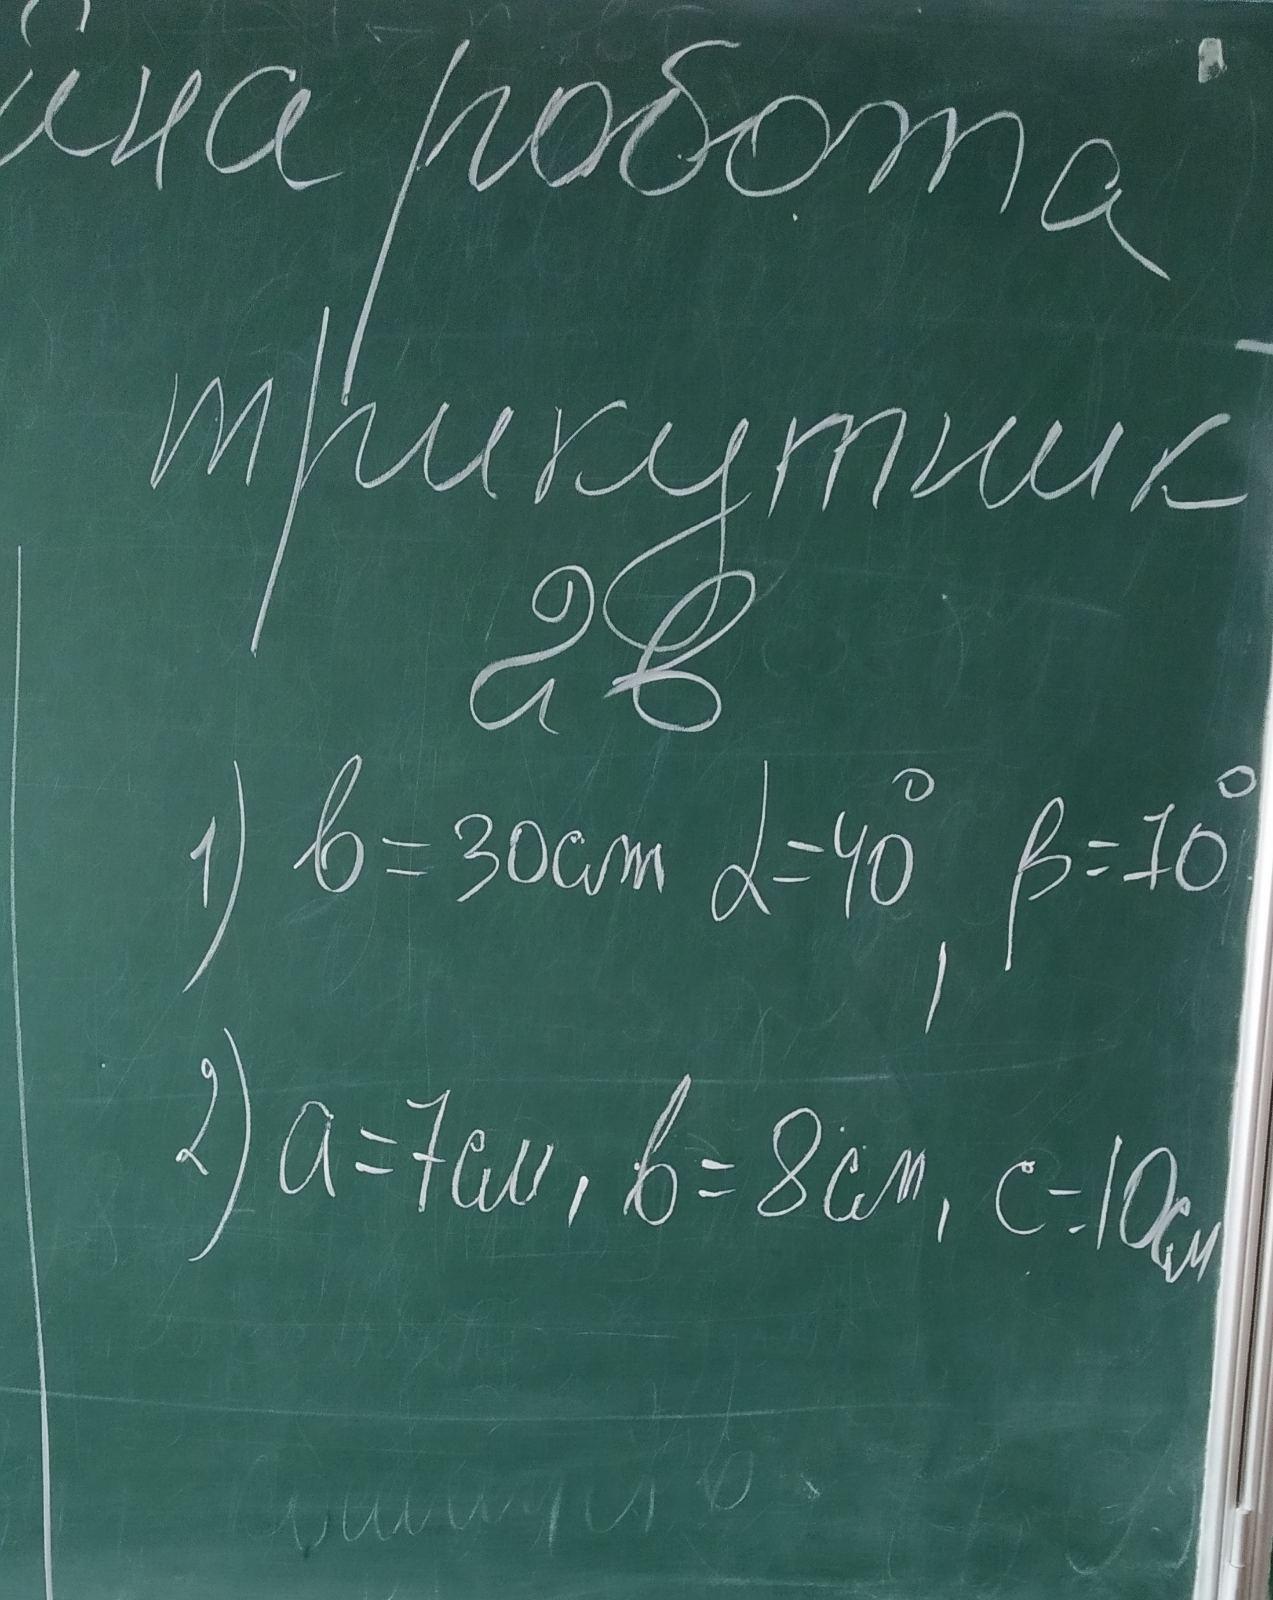 робота
трикутник
2в
1) b=30см α=40°, β=70°
2) a=7см, b=8см, c=10см